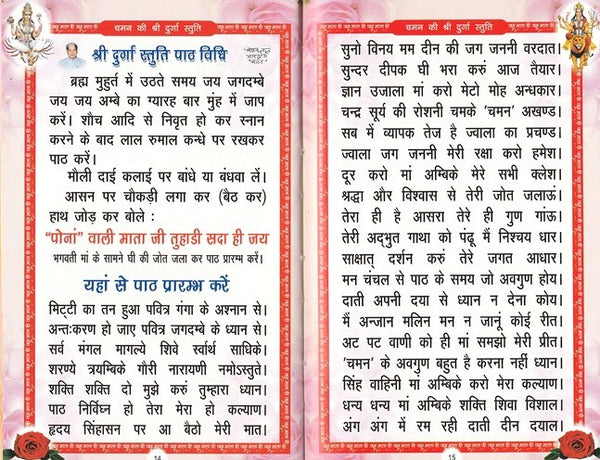 चमन की श्री दुर्गा स्तुति
श्री दुर्गा स्तुति पाठ विधि
ब्रह्म मुहुर्त में उठते समय जय जगदम्बे
जय जय अम्बे का ग्यारह बार मुंह में जाप
करें। शौच आदि से निवृत हो कर स्नान
करने के बाद लाल रुमाल कन्धे पर रखकर
पाठ करें।
मौली दाई कलाई पर बांधे या बंधवा लें।
आसन पर चौकड़ी लगा कर (बैठ कर)
हाथ जोड़ कर बोले :
“पोनां” वाली माता जी तुहाडी सदा ही जय
भगवती मां के सामने घी की जोत जला कर पाठ प्रारम्भ करें।
यहां से पाठ प्रारम्भ करें
मिट्टी का तन हुआ पवित्र गंगा के अश्नान से।
अन्तःकरण हो जाए पवित्र जगदम्बे के ध्यान से।
सर्व मंगल मागल्ये शिवे स्वार्थ साधिके।
शरण्ये त्रयम्बिके गौरी नारायणी नमोऽस्तुते।
शक्ति शक्ति दो मुझे करुं तुम्हारा ध्यान।
पाठ निर्विघ्न हो तेरा मेरा हो कल्याण।
हृदय सिंहासन पर आ बैठो मेरी मात।
14
चमन की श्री दुर्गा स्तुति
सुनो विनय मम दीन की जग जननी वरदात।
सुन्दर दीपक घी भरा करुं आज तैयार।
ज्ञान उजाला मां करो मेटो मोह अन्धकार।
चन्द्र सूर्य की रोशनी चमके 'चमन' अखण्ड।
सब में व्यापक तेज है ज्वाला का प्रचण्ड।
ज्वाला जग जननी मेरी रक्षा करो हमेश।
दूर करो मां अम्बिके मेरे सभी क्लेश।
श्रद्धा और विश्वास से तेरी जोत जलाऊं।
तेरा ही है आसरा तेरे ही गुण गांऊ।
तेरी अद्भुत गाथा को पंढू मैं निश्चय धार।
साक्षात् दर्शन करुं तेरे जगत आधार।
मन चंचल से पाठ के समय जो अवगुण होय।
दाती अपनी दया से ध्यान न देना कोय।
मैं अन्जान मलिन मन न जानूं कोई रीत।
अट पट वाणी को ही मां समझो मेरी प्रीत।
'चमन' के अवगुण बहुत है करना नहीं ध्यान।
सिंह वाहिनी मां अम्बिके करो मेरा कल्याण।
धन्य धन्य मां अम्बिके शक्ति शिवा विशाल।
अंग अंग में रम रही दाती दीन दयाल।
15